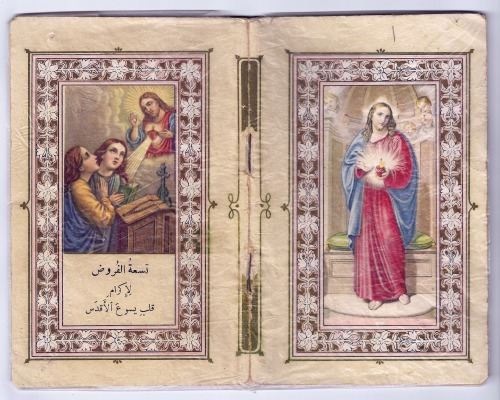 تسعةُ الفُروض
لِإكرامِ
قلبِ يسوعَ ٱلأقدَس